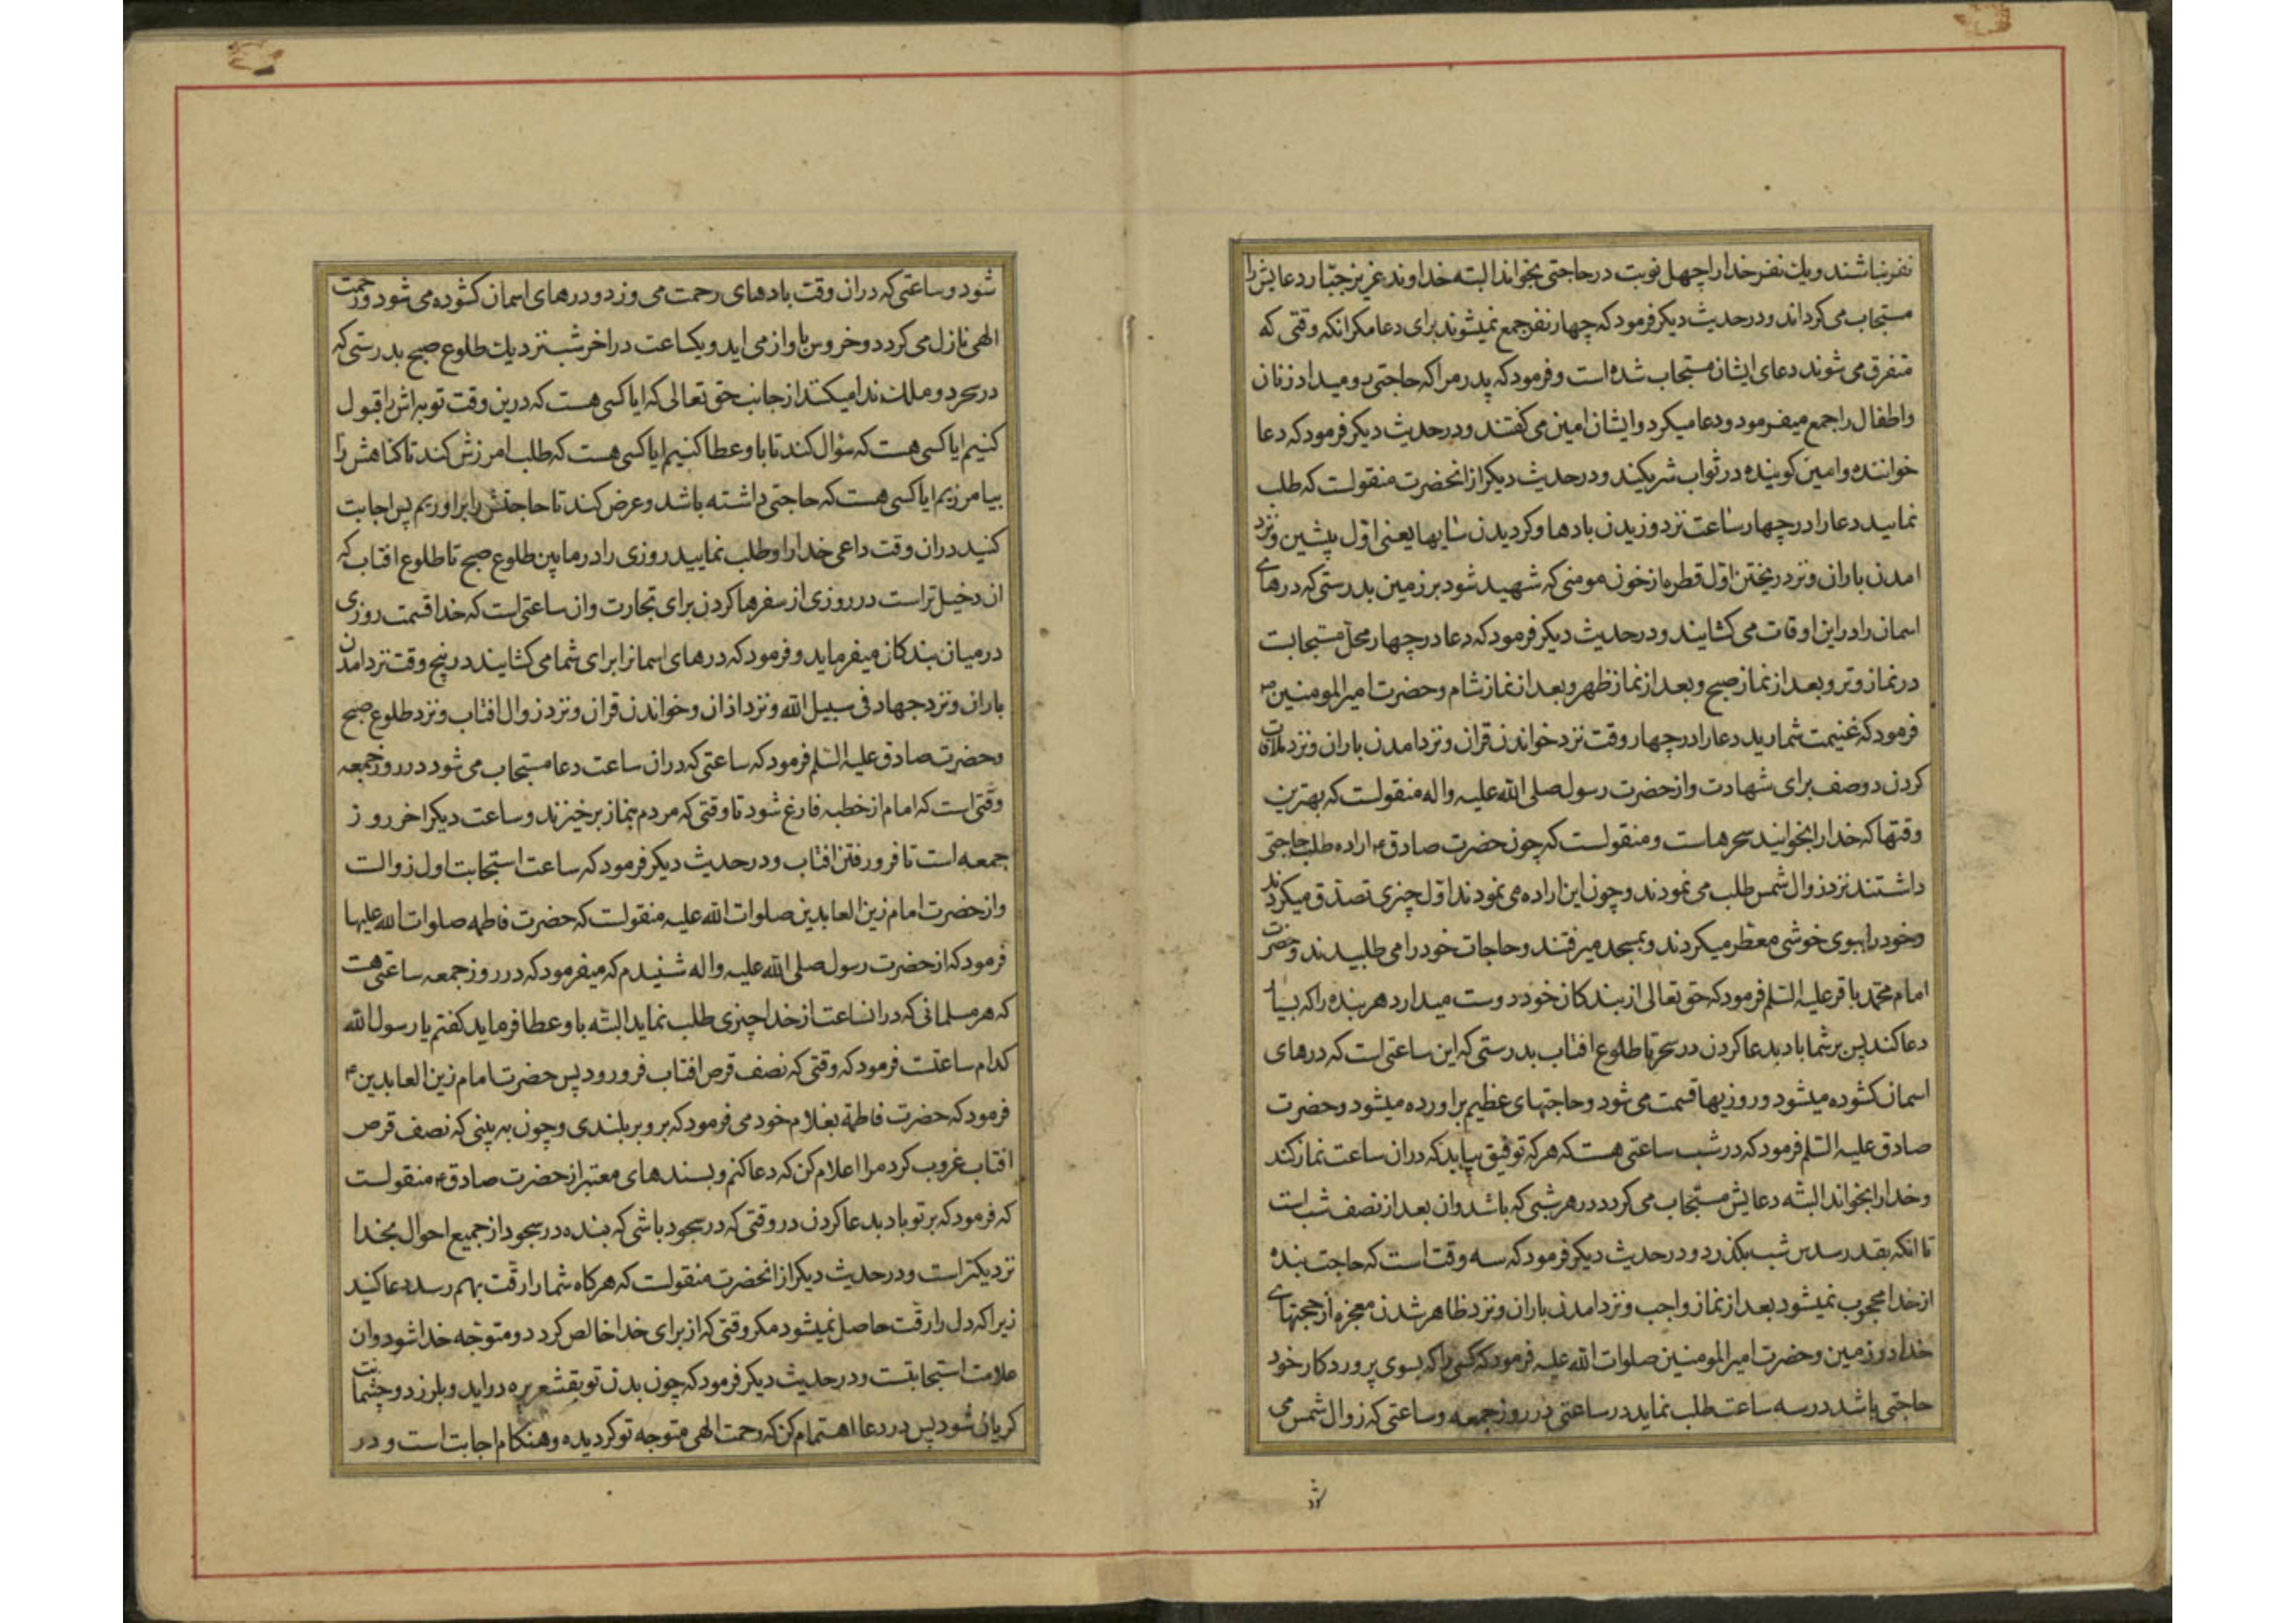 نفر نباشند ویك نفر خدا را چهل نوبت در حاجتی بخواند البته خداوند عزیز جبّار دعایش را
مستجاب می کرداند ودر حدیث دیکر فرمود که چهار نفر جمع نمیشوند برای دعا مکر انکه وقتی که
متفرق می شوند دعای ایشان مستجاب شده است وفرمود که پدر مرا که حاجتی رو میداد زنان
واطفال را جمع میفرمود ودعا میکرد وایشان امین می کفتند ودر حدیث دیکر فرمود که دعا
خواننده وامین کوینده در ثواب شریکند ودر حدیث دیکر از انحضرت منقولست که طلب
نمایید دعا را در چهار ساعت نزد وزیدن بادها وکردیدن سایها یعنی اوّل پیشین ونزد
امدن باران ونزد ریختن اوّل قطره از خون مومنی که شهید شود بر زمین بدرستی که درهای
اسمان را در این اوقات می کشایند ودر حدیث دیکر فرمود که دعا در چهار محلّ مستجابست
در نماز وتر وبعد از نماز صبح وبعد از نماز ظهر وبعد از نماز شام وحضرت امیر المومنین ع
فرمود که غنیمت شمارید دعا را در چهار وقت نزد خواندن قران ونزد امدن باران ونزد ملاقات
کردن دو صف برای شهادت واز حضرت رسول صلی الله علیه واله منقولست که بهترین
وقتها که خدا را بخوانید سحرهاست ومنقولست که چون حضرت صادق ع اراده طلب حاجتی
داشتند نزد زوال شمس طلب می نمودند وچون این اراده می نمودند اوّل چیزی تصدّق میکردند
وخود را ببوی خوشی معطّر میکردند وبمسجد میرفتند وحاجات خود را می طلبیدند وحضرت
امام محمّد باقر علیه السّلم فرمود که حق تعالی از بندکان خود دوست میدارد هر بنده را که بسیار
دعا کند پس بر شما باد بدعا کردن در سحر تا طلوع افتاب بدرستی که این ساعتی است که درهای
اسمان کشوده میشود وروزیها قسمت می شود وحاجتهای عظیم براورده میشود وحضرت
صادق علیه السّلم فرمود که در شب ساعتی هست که هر که توفیق بیابد که دران ساعت نماز کند
وخدا را بخواند البتّه دعایش مستجاب می کردد در هر شبی که باشد وان بعد از نصف شب است
تا انکه بقدر سدس شب بکذرد ودر حدیث دیکر فرمود که سه وقت است که حاجت بنده
از خدا محجوب نمیشود بعد از نماز واجب ونزد امدن باران ونزد ظاهر شدن معجزه از حجتهای
خدا در زمین وحضرت امیر المومنین صلوات الله علیه فرمود که کسی را که بسوی پروردکار خود
حاجتی باشد در سه ساعت طلب نماید در ساعتی در روز جمعه وساعتی که زوال شمس می
شود
شود وساعتی که دران وقت بادهای رحمت می وزد ودرهای اسمان کشوده می شود ورحمت
الهی نازل می کردد وخروس باواز می اید ویکساعت در اخر شب نزدیك طلوع صبح بدرستی که
در سحر دو ملك ندا میکنند از جانب حق تعالی که ایا کسی هست که درین وقت توبه اش را قبول
کنیم ایا کسی هست که سؤال کند تا باو عطا کنیم ایا کسی هست که طلب امرزش کند تا کناهش را
بیامرزیم ایا کسی هست که حاجتی داشته باشد وعرض کند تا حاجتش را براوریم پس اجابت
کنید دران وقت داعی خدا را وطلب نمایید روزی را در مابین طلوع صبح تا طلوع افتاب که
ان دخیل تر است در روزی از سفرها کردن برای تجارت وان ساعتی است که خدا قسمت روزی
در میان بندکان میفرماید وفرمود که درهای اسمانرا برای شما می کشایند در پنج وقت نزد امدن
باران ونزد جهاد فی سبیل الله ونزد اذان وخواندن قران ونزد زوال افتاب ونزد طلوع صبح
وحضرت صادق علیه السّلم فرمود که ساعتی که دران ساعت دعا مستجاب می شود در روز جمعه
وقتی است که امام از خطبه فارغ شود تا وقتی که مردم بنماز برخیزند وساعت دیکر اخر روز
جمعه است تا فرو رفتن افتاب ودر حدیث دیکر فرمود که ساعت استجابت اول زوالست
واز حضرت امام زین العابدین صلوات الله علیه منقولست که حضرت فاطمه صلوات الله علیها
فرمود که از حضرت رسول صلی الله علیه واله شنیدم که میفرمود که در روز جمعه ساعتی هست
که هر مسلمانی که در انساعت از خدا چیزی طلب نماید البتّه باو عطا فرماید کفتم یا رسول الله
کدام ساعتست فرمود که وقتی که نصف قرص افتاب فرو رود پس حضرت امام زین العابدین ع
فرمود که حضرت فاطمة بغلام خود می فرمود که برو بر بلندی وچون به بینی که نصف قرص
افتاب غروب کرد مرا اعلام کن که دعا کنم وبسندهای معتبر از حضرت صادق ع منقولست
که فرمود که بر تو باد بدعا کردن در وقتی که در سجود باشی که بنده در سجود از جمیع احوال بخدا
نزدیکتر است ودر حدیث دیکر از انحضرت منقولست که هرکاه شما را رقّت بهم رسد دعا کنید
زیرا که دل را رقّت حاصل نمیشود مکر وقتی که از برای خدا خالص کردد ومتوجّه خدا شود وان
علامت استجابتست ودر حدیث دیکر فرمود که چون بدن تو بقشعریره دراید وبلرزد وچشمانت
کریان شود پس در دعا اهتمام کن که رحمت الهی متوجه تو کردیده وهنکام اجابت است ودر